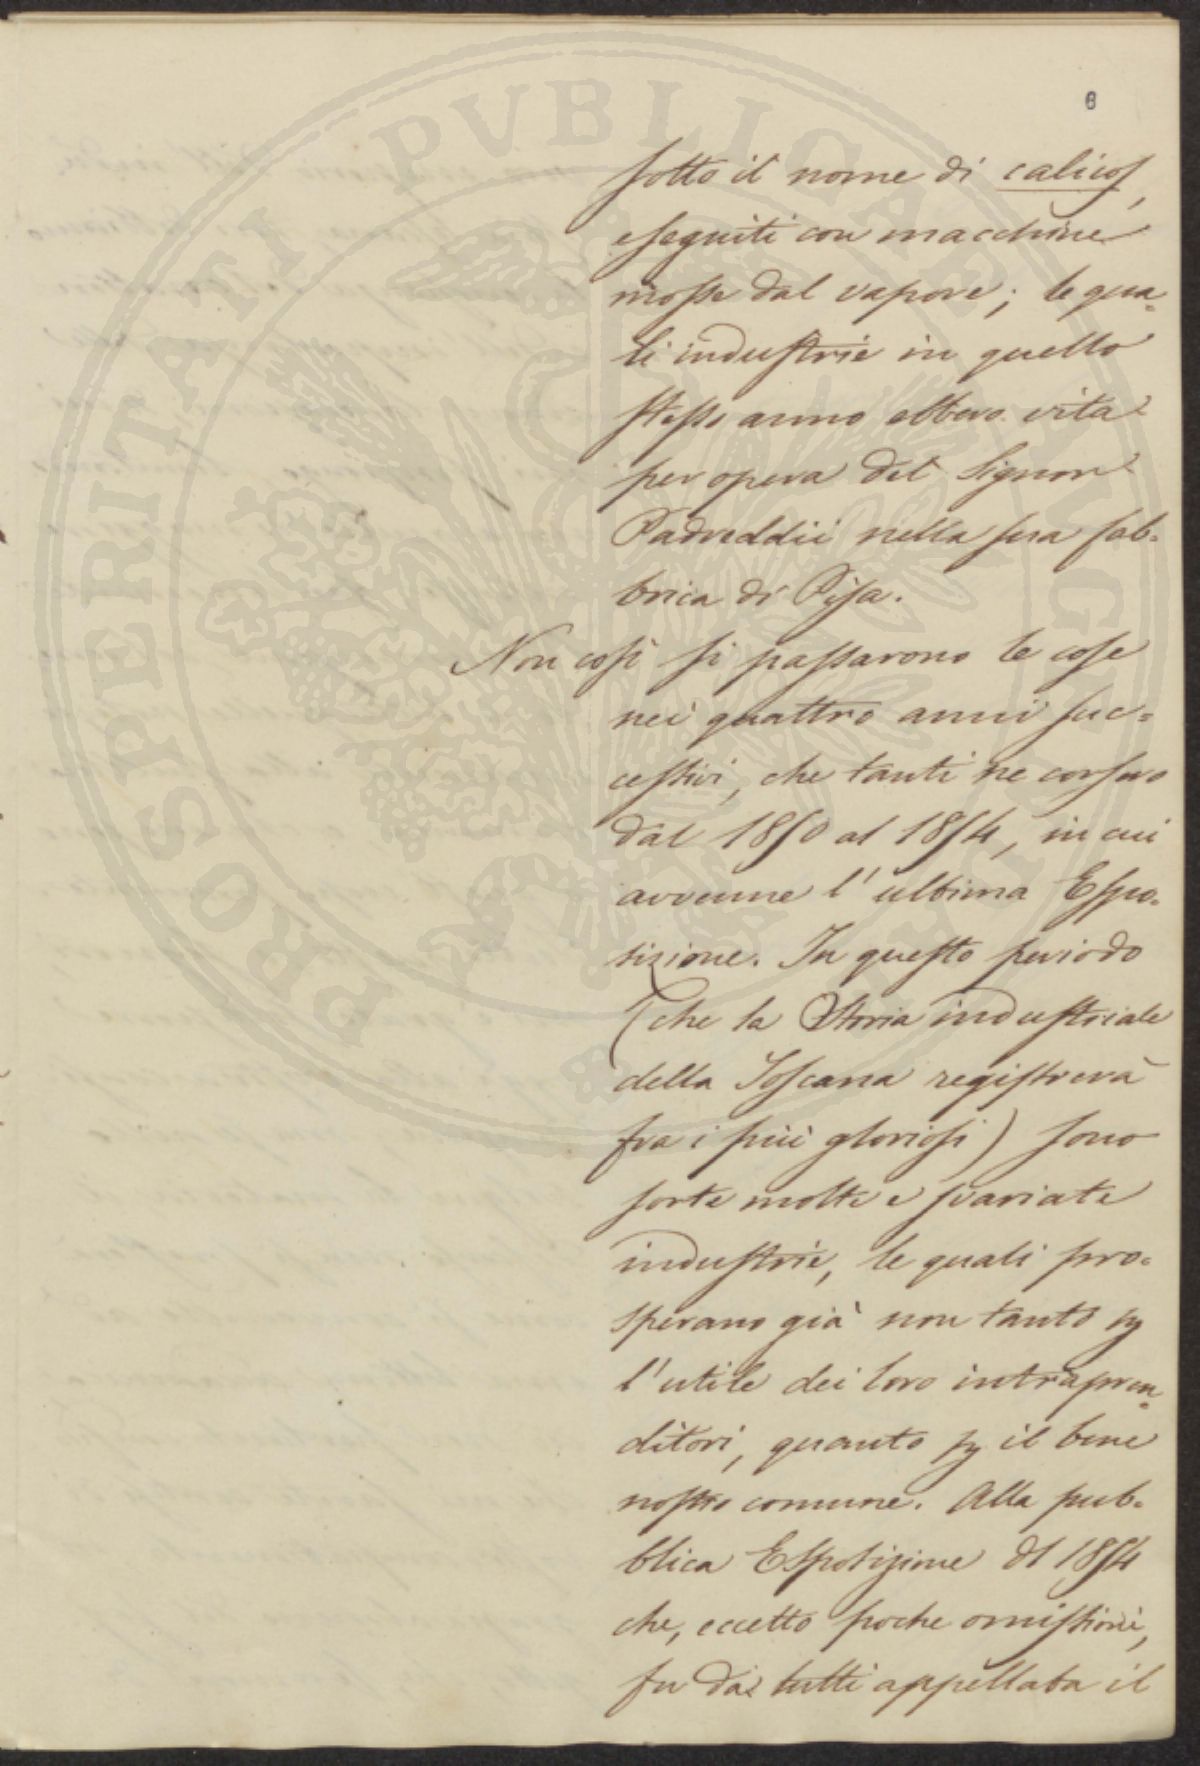 6
sotto il nome di calicos,
eseguiti con macchine
mosse dal vapore; le qua=
li industrie in quello
stesso anno ebbero vita
per opera del Signor
nella sua fab=
brica di Pisa.
Non così si passarono le cose
nei quattro anni suc=
cessivi, che tanti ne corsero
dal 1850 al 1854, in cui
avvenne l'ultima Espo=
sizione. In questo periodo
(che la Storia industriale
della Toscana registrerà
fra i più gloriosi) sono
sorte molte e svariate
industrie, le quali pro=
sperano già non tanto p
l'utile dei loro intrapren=
ditori, quanto p il bene
nostro comune. Alla pub=
blica Esposizione del 1854
che, eccetto poche omissioni,
fu da tutti appellata il
PROSPERITATI PVBLICAE